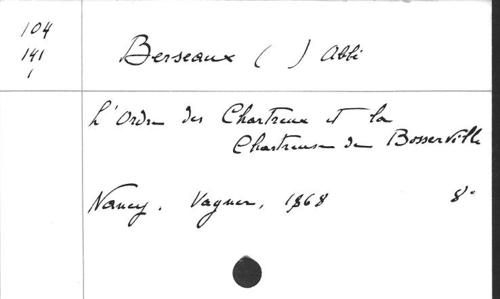 104
141
1
Berseaux ( ) Abbé
L'Ordre des Chartreux et la
Chartreuse de Bosserville
Nancy. Vagner, 1868 8°